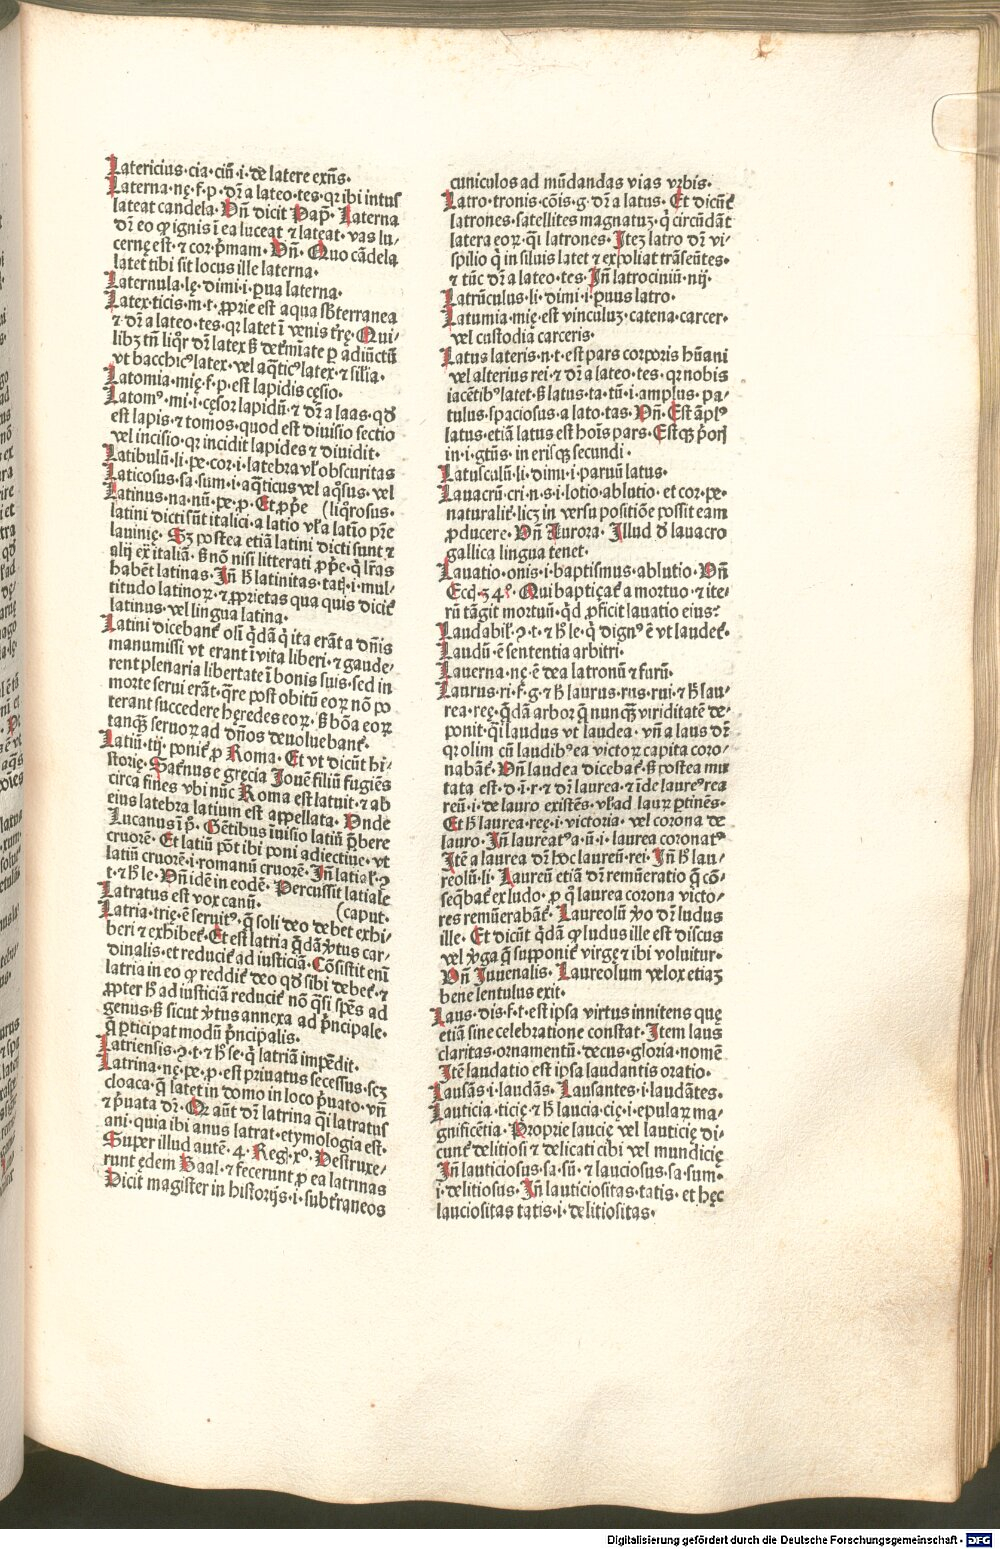 Latericius·cia·ciū·i·de latere exn̄s·
Laterna·nę·f·p·dr̄ a lateo·tes·qr ibi intus
lateat candela·Vn̄ dicit Pap̄·Laterna
dr̄ eo ꝙ ignis ī ea luceat ⁊ lateat·vas lu⸗
cernę est·⁊ cor·p̄mam·Vn̄·Quo cādela
latet tibi sit locus ille laterna·
Laternula·lę·dimi·i·ꝑua laterna·
Latex·ticis·m·t·ꝓprie est aqua sb̄terranea
⁊ dr̄ a lateo·tes·qr latet ī venis tr̄ę·Qui⸗
libꝫ tn̄ liq̄or dr̄ latex ß determīate ꝑ adiūctū
vt bacchicꝰ latex·vel aq̄ticꝰ latex·⁊ silīa·
Latomia·mię·f·p·est lapidis cęsio·
Latomꝰ·mi·i·cęsor lapidū·⁊ dr̄ a laas·qd̄
est lapis·⁊ tomos·quod est diuisio sectio
vel incisio·qr incidit lapides ⁊ diuidit·
Latibulū·li·pe·cor·i·latebra vl̓ obscuritas
Laticosus·sa·sum·i·aq̄ticus vel aq̄sus·vel
Latinus·na·nū·pe·p·Et ꝓp̄e (liq̄rosus·
latini dicti sūt italici·a latio vl̓ a latīo p̄re
lauinię·Sꝫ postea etiā latini dicti sunt ⁊
alij ex̄ italiā·ß nō nisi litterati ꝓp̄e·q̄ lr̄as
habēt latinas·Jn̄ h̄ latinitas·tatꝭ·i·mul⸗
titudo latinoꝝ·⁊ ꝓprietas qua quis dicit̄
latinus·vel lingua latina·
Latini dicebant̄ olī q̄dā q̄ ita erāt a dn̄is
manumissi vt erant ī vita liberi·⁊ gaude⸗
rent plenaria libertate ī bonis suis·sed in
morte serui erāt·q̄re post obitū eoꝝ nō po
terant succedere hęredes eoꝝ·ß bōa eoꝝ
tanqꝫ seruoꝝ ad dn̄os deuoluebant̄·
Latiū·tij·ponit̄ ꝓ Roma·Et vt dicūt hi⸗
storię·Satn̄us e gręcia Jouē filiū fugiēs
circa fines vbi nūc Roma est latuit·⁊ ab
eius latebra latium est appellata·Vnde
Lucanus ī p̄·Gētibus īuisio latiū p̄bere
cruorē·Et latiū pōt ibi poni adiectiue·vt
latiū cruorē·i·romanū cruorē·Jn̄ latial̓·ꝯ
t·⁊ h̄ le·Vn̄ idē in eodē·Percussit latiale
Latratus est vox canū· (caput·
Latria·trię·ē seruitꝰ·q̄ soli deo debet exhi⸗
beri ⁊ exhibet̄·Et est latria q̄dā v̓tus car⸗
dinalis·et reducit̄ ad iusticiā·Cōsistit enī
latria in eo ꝙ reddit̄ deo qd̄ sibi debet̄·⁊
ꝓpter h̄ ad iusticiā reducit̄ nō q̄si spēs ad
genus·ß sicut v̓tus annexa ad p̄ncipale·
q̄ ꝑticipat modū p̄ncipalis·
Latriensis·ꝯ·t·⁊ h̄ se·q̄ latriā impēdit·
Latrina·nę·pe·p·est priuatus secessus·scꝫ
cloaca·q̄ latet in domo in loco p̄uato·vn̄
⁊ p̄uata dr̄·Qr aūt dr̄ latrina q̄si latratus
ani·quia ibi anus latrat·etymologia est·
Super illud autē·4·Reg·xͦ·Destruxe⸗
runt ędem Baal·⁊ fecerunt ꝓ ea latrinas
Dicit magister in historijs·i·subtr̄aneos
cuniculos ad mūdandas vias vrbis·
Latro·tronis·cōis·g·dr̄ a latus·Et dicūt̄
latrones·satellites magnatuꝫ·q̄ circūdāt
latera eoꝝ·q̄si latrones·Jteꝫ latro dr̄ vi⸗
spilio q̄ in siluis latet ⁊ expoliat trāseūtes·
⁊ tūc dr̄ a lateo·tes·Jn̄ latrociniū·nij·
Latrūculus·li·dimi·i·ꝑuus latro·
Latumia·mię·est vinculuꝫ·catena·carcer·
vel custodia carceris·
Latus lateris·n·t·est pars corporis hūani
vel alterius rei·⁊ dr̄ a lateo·tes·qr nobis
iacētibꝰ latet·ß latus·ta·tū·i·amplus·pa⸗
tulus·spaciosus·a lato·tas·Vn̄·Est āplꝰ
latus·etiā latus est hoīs pars·Estqꝫ p̄orꝭ
in·i·gtūs·in erisqꝫ secundi·
Latusculū·li·dimi·i·paruū latus·
Lauacrū·cri·n·s·i·lotio·ablutio·et cor·pe·
naturalit̓·licꝫ in versu positiōe possit eam
ꝓducere·Vn̄ Aurora·Jllud d̄ lauacro
gallica lingua tenet·
Lauatio·onis·i·baptismus·ablutio·Vn̄
Ecci·34·Qui baptiçat̄ a mortuo·⁊ ite⸗
rū tāgit mortuū·qd̄ ꝓficit lauatio eius?
Laudabil̓·ꝯ·t·⁊ h̄ le·q̄ dignꝰ ē vt laudet̄·
Laudū·ē sententia arbitri·
Lauerna·nę·ē dea latronū ⁊ furū·
Laurus·ri·f·g·⁊ h̄ laurus·rus·rui·⁊ h̄ lau⸗
rea·reę·q̄dā arbor q̄ nunqꝫ viriditatē de⸗
ponit·q̄si laudus vt laudea·vn̄ a laus dr̄
qr olim cū laudibꝰ ea victoꝝ capita coro⸗
nabāt̄·Vn̄ laudea dicebat̄·ß postea mu
tata est·d·i·r·⁊ dr̄ laurea·⁊ īde laureꝰ rea
reū·i·de lauro existēs·vl̓ ad lauꝝ ꝑtinēs·
Et h̄ laurea·reę·i·victoria·vel corona de
lauro·Jn̄ laureatꝰ a·ū·i·laurea coronatꝰ
Jtē a laurea dr̄ hoc laureū·rei·Jn̄ h̄ lau⸗
reolū·li·Laureū etiā dr̄ remūeratio q̄ cō⸗
seq̄bat̄ ex ludo·ꝓ q̄ laurea corona victo⸗
res remūerabāt̄·Laureolū v̓o dr̄ ludus
ille·Et dicūt q̄dā ꝙ ludus ille est discus
vel v̓ga q̄ supponit̄ virgę ⁊ ibi voluitur·
Vn̄ Juuenalis·Laureolum velox etiaꝫ
bene lentulus exit·
Laus·dis·f·t·est ipsa virtus innitens quę
etiā sine celebratione constat·Jtem laus
claritas·ornamentū·decus·gloria·nomē
Jtē laudatio est ipsa laudantis oratio·
Lausās·i·laudās·Lausantes·i·laudātes·
Lauticia·ticię·⁊ h̄ laucia·cię·i·epulaꝝ ma⸗
gnificētia·Proprie laucię vel lauticię di⸗
cunt̄ delitiosi ⁊ delicati cibi vel mundicię
Jn̄ lauticiosus·sa·sū·⁊ lauciosus·sa·sum·
i·delitiosus·Jn̄ lauticiositas·tatis·et hęc
lauciositas tatis·i·delitiositas·
Digitalisierung gefördert durch die Deutsche Forschungsgemeinschaft - DFG